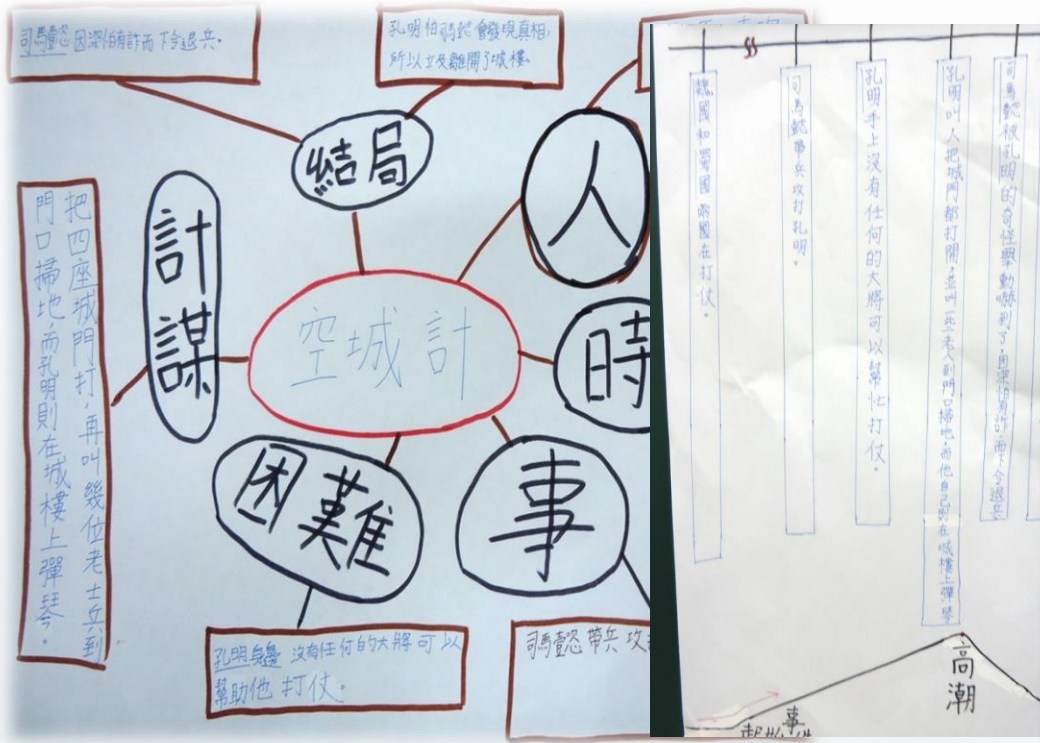 司馬懿因深怕有詐而下令退兵。
孔明怕司馬懿會發現真相,
所以立刻離開了城樓。
結局
人
計謀
把四座城門打,再叫幾位老士兵到
門口掃地,而孔明則在城樓上彈琴。
空城計
時
困難
事
孔明身邊沒有任何的大將可以
幫助他打仗。
司馬懿帶兵攻
魏國和蜀國兩國在打仗。
司馬懿帶兵攻打孔明。
孔明手上沒有任何的大將可以幫忙打仗。
孔明叫人把城門都打開,並叫一些老人到門口掃地,而他自己則在城樓上彈琴
司馬懿被孔明的奇怪舉動嚇到了,因深怕有詐,而下令退兵
高潮
事